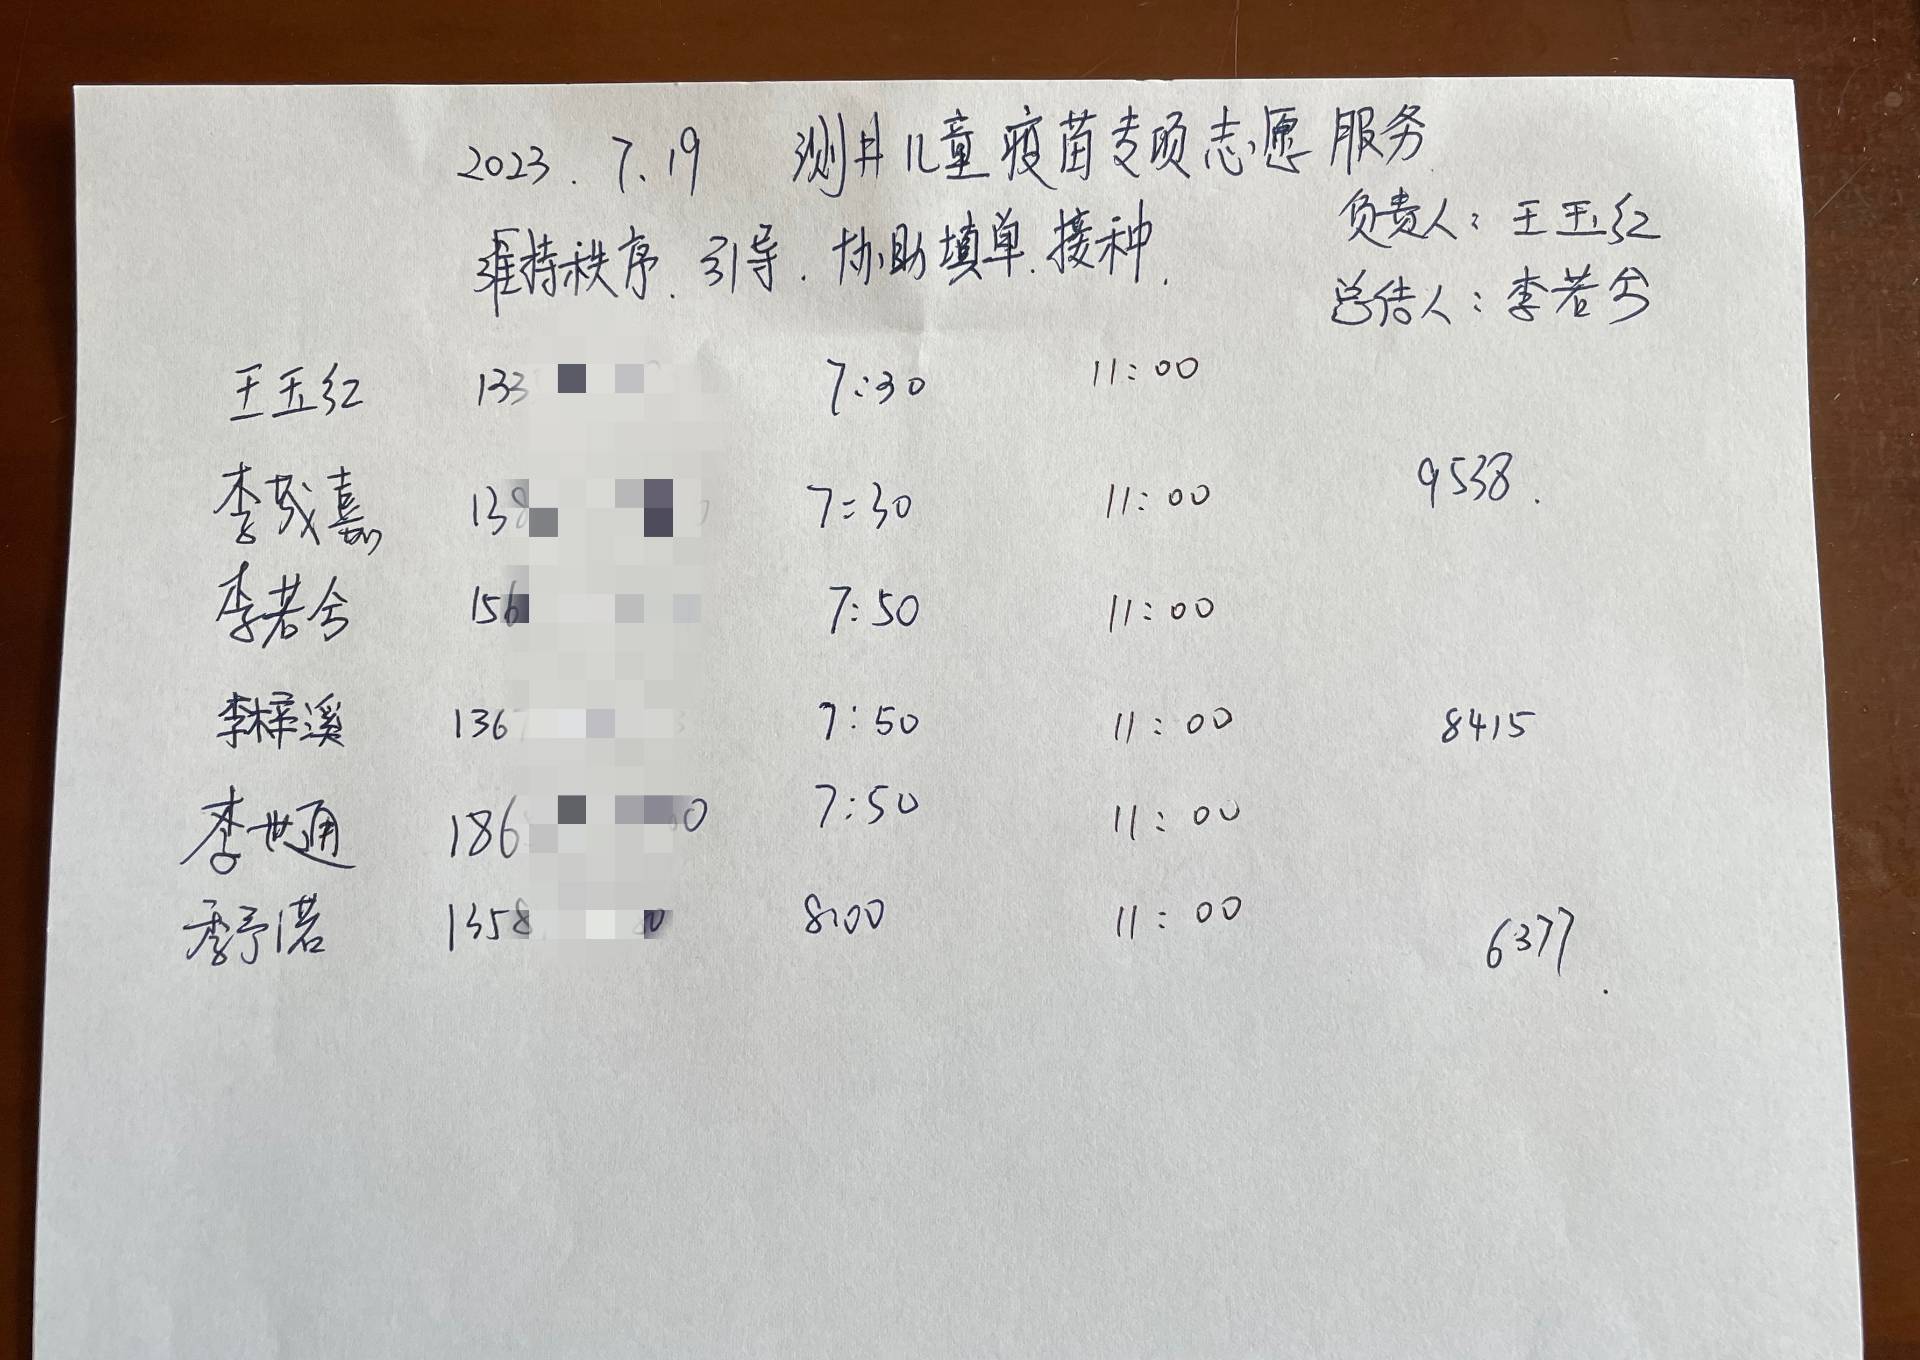 2023.7.19 测井儿童疫苗专项志愿服务
维持秩序、引导、协助填单、接种.
负责人：王玉红
总结人：李若兮
王玉红 133 7:30 11:00
李成嘉 138 7:30 11:00 9538.
李若兮 156 7:50 11:00
李梓溪 136 7:50 11:00 8415
李世通 186 0 7:50 11:00
季予诺 1358 8:00 11:00 6377.